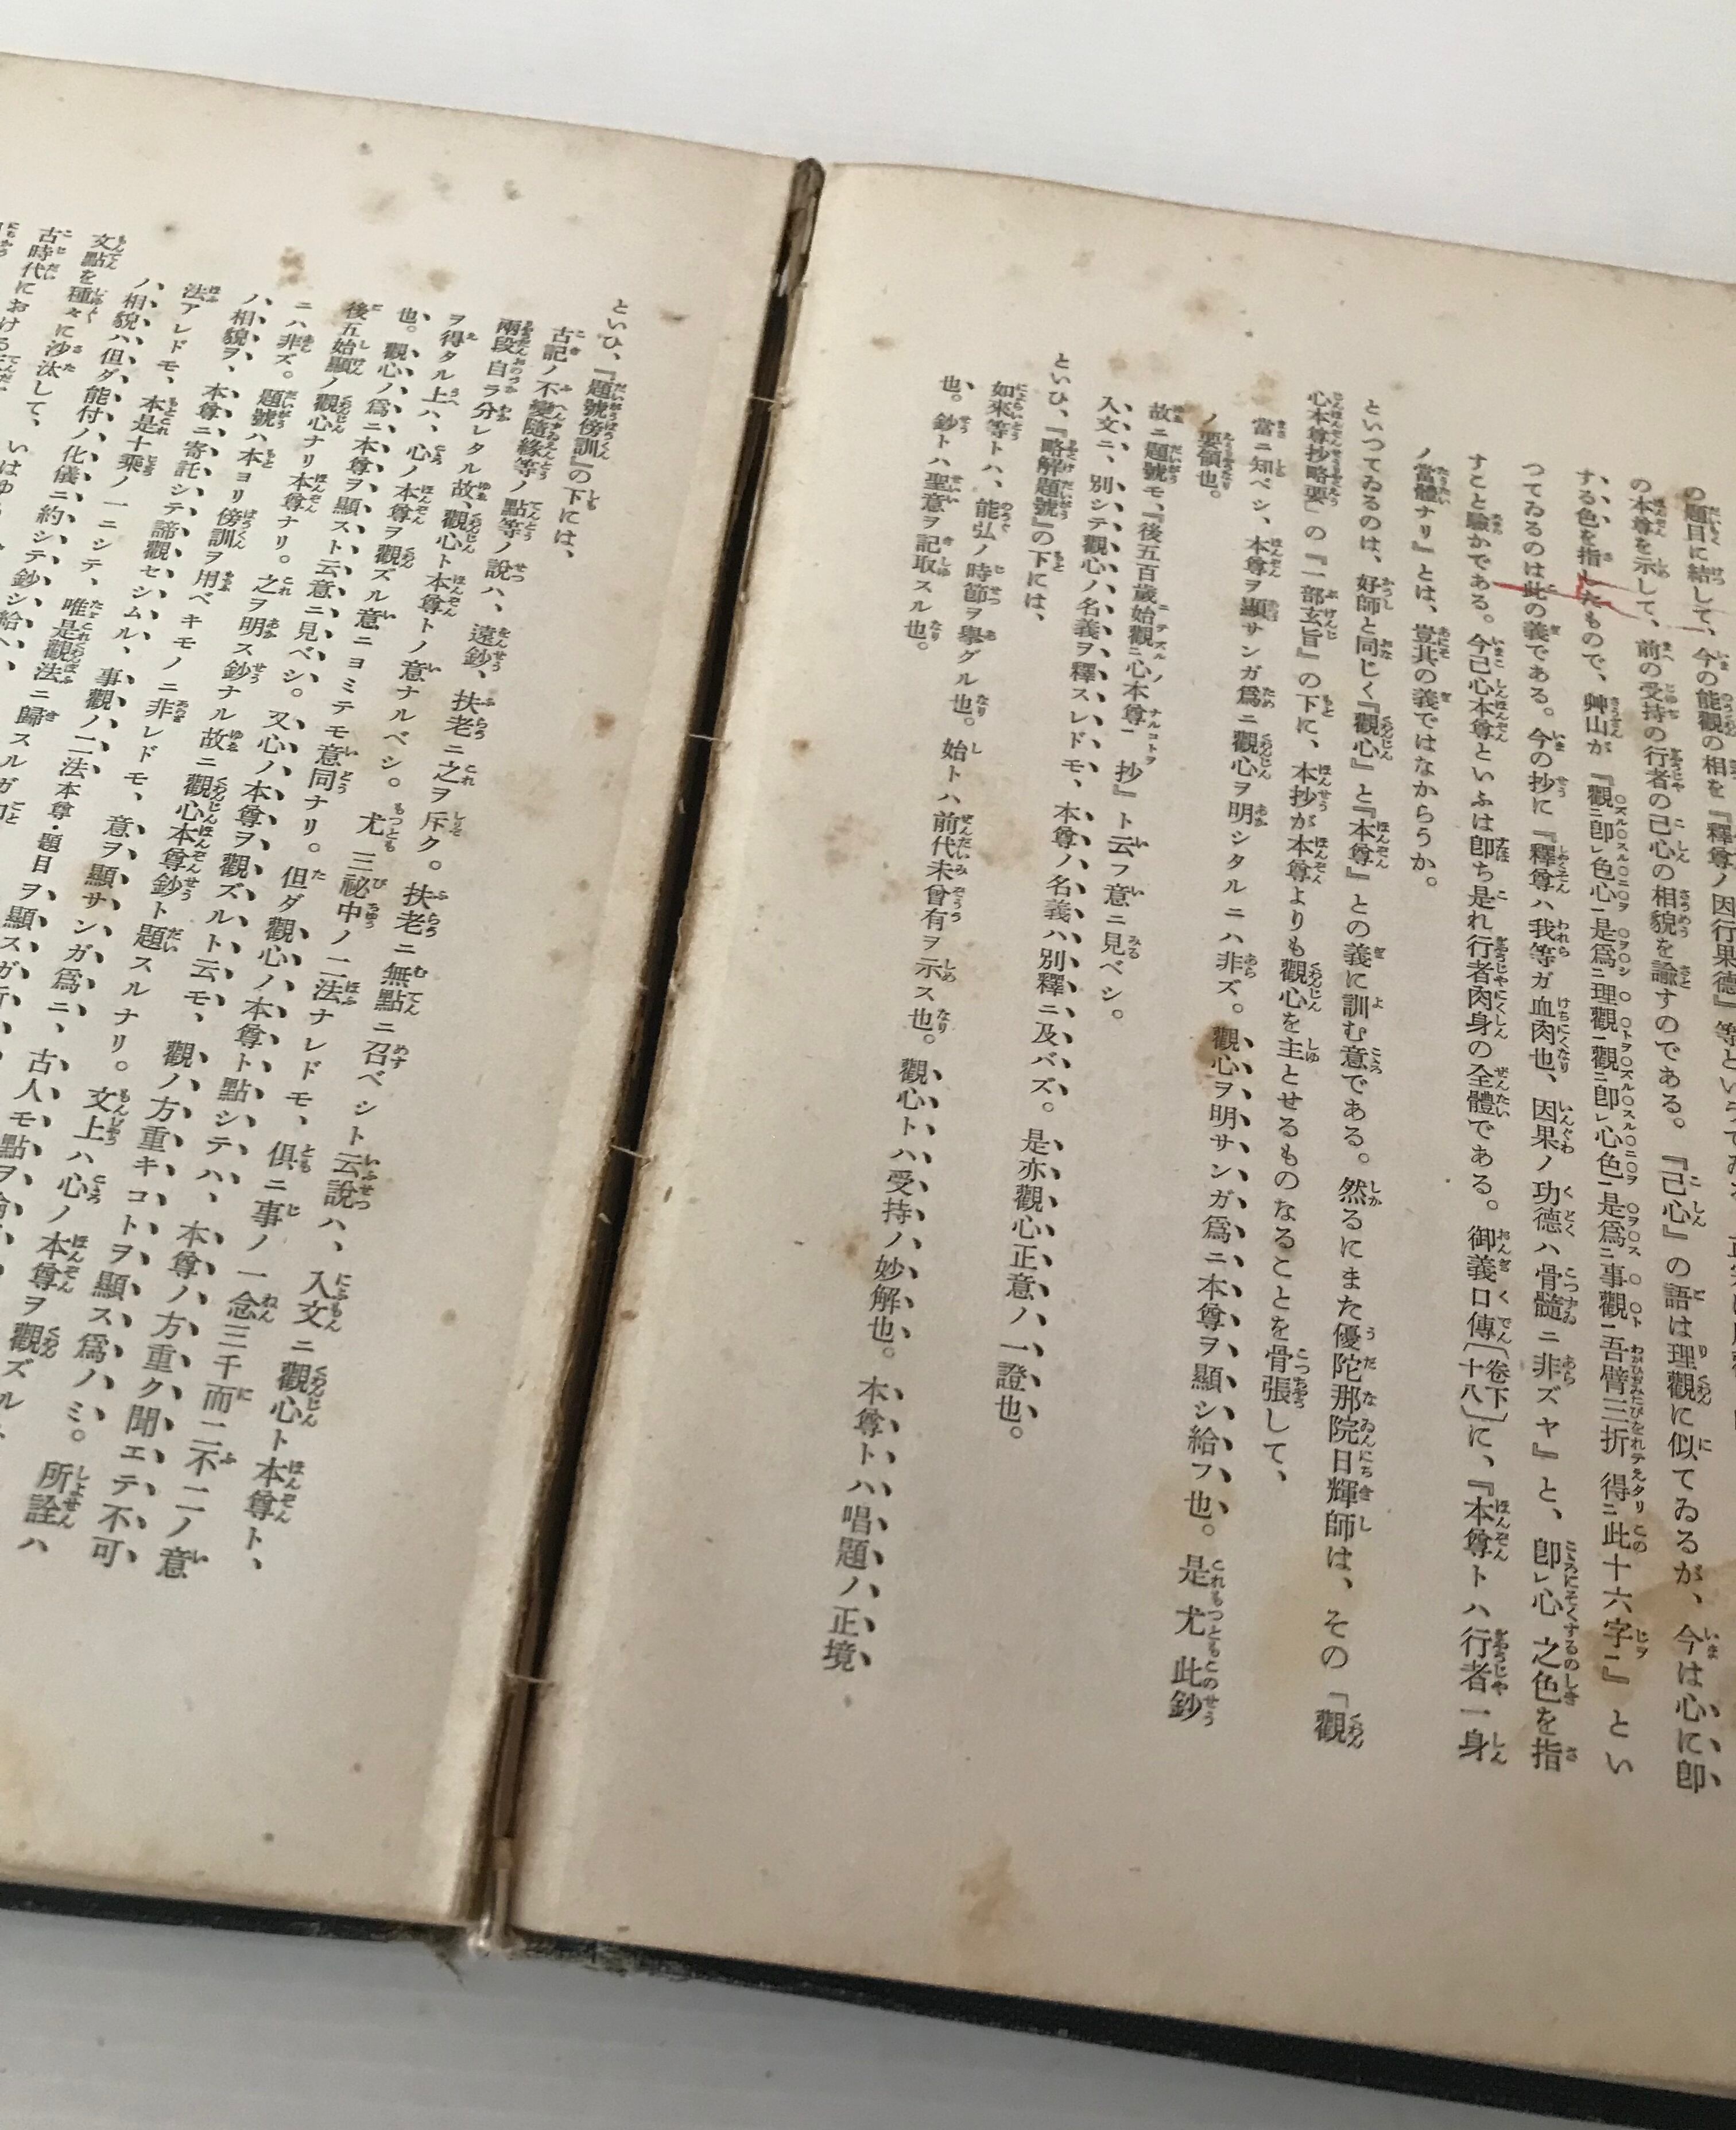 の題目に結して、今の能觀の相を『釋尊ノ因行果德』等といつてゐる
の本尊を示して、前の受持の行者の己心の相貌を諭すのである。『己心』の語は理觀に似てゐるが、今は心に卽
する色を指したもので、艸山が『觀ニ卽レ色心ニ是爲ニ理觀ニ觀ニ卽レ心色ニ是爲ニ事觀ニ吾臂三折得ニ此十六字ニ』とい
つてゐるのは此の義である。今の抄に『釋尊ハ我等ガ血肉也、因果ノ功德ハ骨髓ニ非ズヤ』と、卽レ心之色を指
すこと驗かである。今己心本尊といふは卽ち是れ行者肉身の全體である。御義口傳〔卷下十八〕に、『本尊トハ行者一身
ノ當體ナリ』とは、豈其の義ではなからうか。
といつてゐるのは、好師と同じく『觀心』と『本尊』との義に訓む意である。然るにまた優陀那院日輝師は、その「觀
心本尊抄略要」の『一部玄旨』の下に、本抄が本尊よりも觀心を主とせるものなることを骨張して、
當ニ知ベシ、本尊ヲ顯サンガ爲ニ觀心ヲ明シタルニハ非ズ。觀心ヲ明サンガ爲ニ本尊ヲ顯シ給フ也。是尤此鈔
ノ要領也。
故ニ題號モ、『後五百歲始觀ニ心本尊ニ抄』ト云フ意ニ見ベシ。
入文ニ、別シテ觀心ノ名義ヲ釋スレドモ、本尊ノ名義ハ別釋ニ及バズ。是亦觀心正意ノ一證也。
といひ、『略解題號』の下には、
如來等トハ、能弘ノ時節ヲ擧グル也。始トハ前代未曾有ヲ示ス也。觀心トハ受持ノ妙解也。本尊トハ唱題ノ正境
也。鈔トハ聖意ヲ記取スル也。
といひ、『題號傍訓』の下には、
古記ノ不變隨緣等ノ點等ノ說ハ、遠鈔、扶老ニ之ヲ斥ク。扶老ニ無點ニ召ベシト云說ハ、入文ニ觀心ト本尊ト、
兩段自ラ分レタル故、觀心ト本尊トノ意ナルベシ。尤三祕中ノ二法ナレドモ、俱ニ事ノ一念三千而二不二ノ意
ヲ得タル上ハ、心ノ本尊ヲ觀ズル意ニヨミテモ意同ナリ。但ダ觀心ノ本尊ト點シテハ、本尊ノ方重ク聞エテ不可
也。觀心ノ爲ニ本尊ヲ顯スト云意ニ見ベシ。又心ノ本尊ヲ觀ズルト云モ、觀ノ方重キコトヲ顯ス爲ノミ。所詮ハ
後五始顯ノ觀心ナリ本尊ナリ。之ヲ明ス鈔ナル故ニ觀心本尊鈔ト題スルナリ。文上ハ心ノ本尊ヲ觀ズル
ニハ非ズ。題號ハ本ヨリ傍訓ヲ用ベキモノニ非レドモ、意ヲ顯サンガ爲ニ、古人モ點ヲ
ノ相貌ヲ、本尊ニ寄託シテ諦觀セシムル、事觀ノ二法本尊・題目ヲ顯スガ
法アレドモ、本是十乘ノ一ニシテ、唯是觀法ニ歸スルガ
ノ相貌ハ但ダ能付ノ化儀ニ約シテ鈔シ給ヘ
文點を種々に沙汰して、いはゆ
古時代における